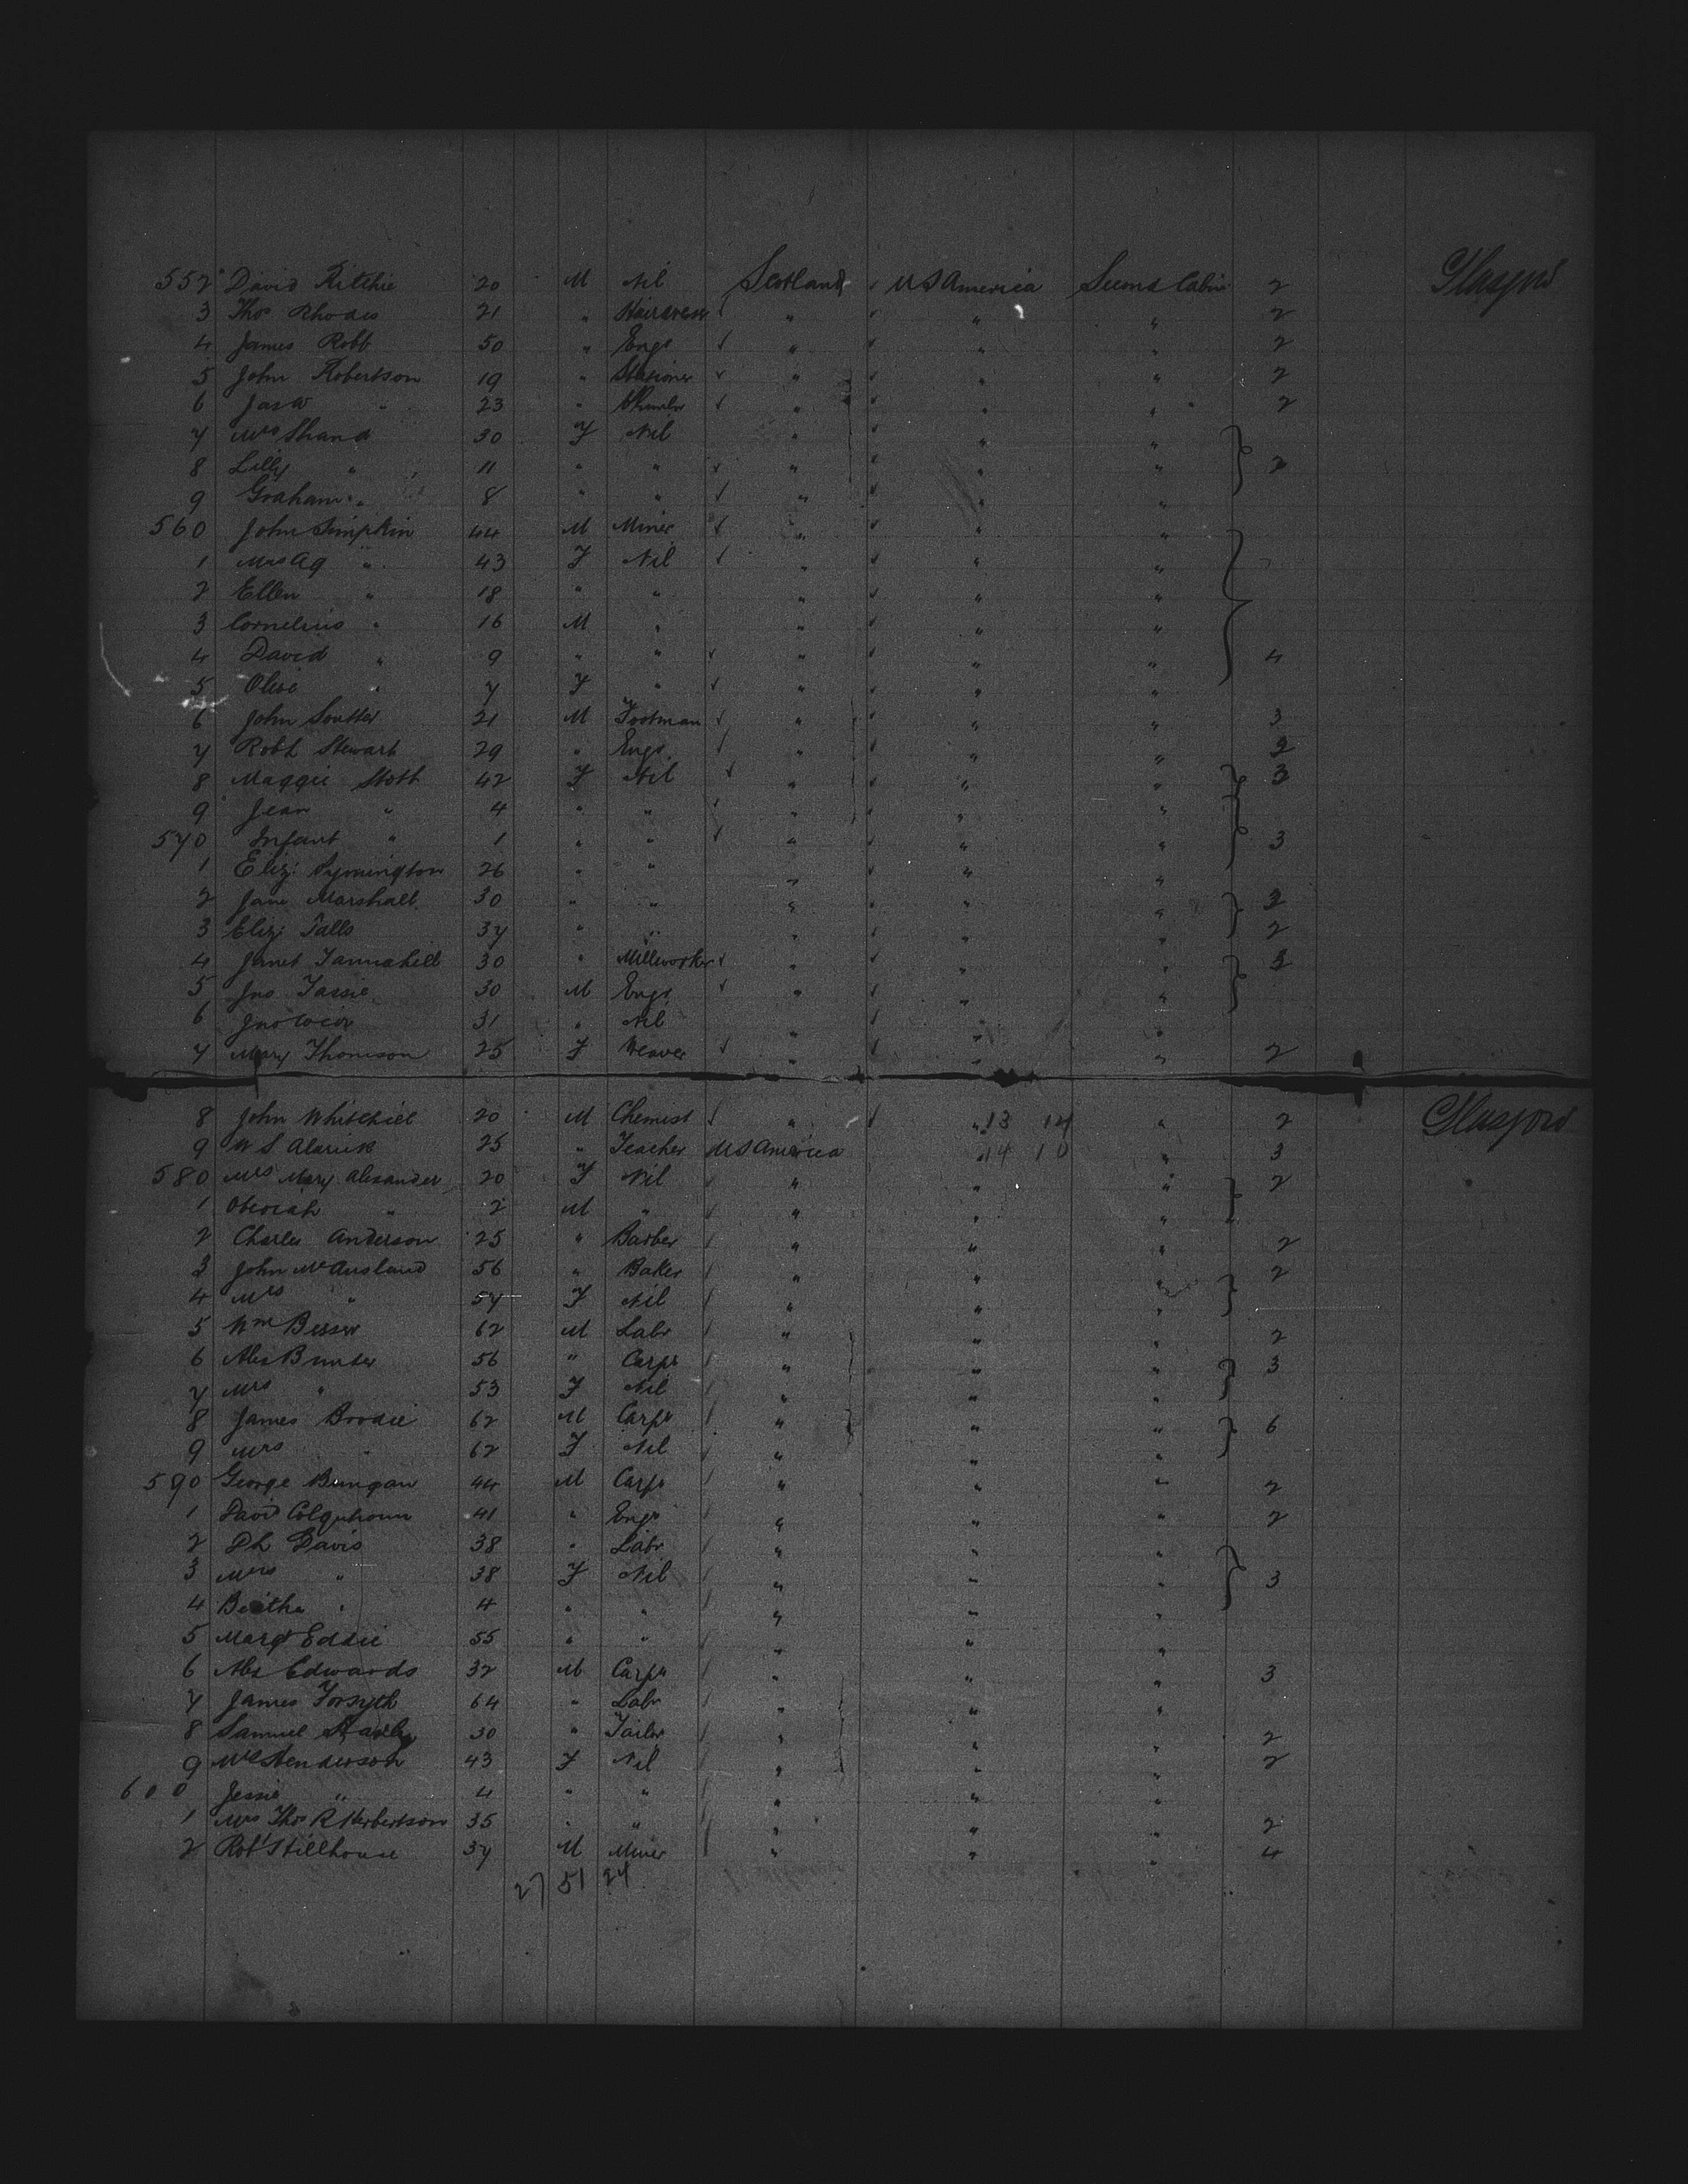 552 David Ritchie 20 M Nil Scotland U S America Second Cabin 2 Glasgow
3 Thos Rhodes 21 " Hairdress " " " 2
4 James Robb 50 " Engr " " " 2
5 John Robertson 19 " Stationer " " " 2
6 Jas W " 23 " Plumber " " " 2
7 Mrs Shand 30 F Nil " " "
8 Lilly " 11 " " " " " 2
9 Graham " 8 " " " " "
560 John Simpkin 44 M Miner " " "
1 Mrs Ag " 43 F Nil " " "
2 Ellen " 18 " " " " "
3 Cornelius " 16 M " " " "
4 David " 9 " " " " " 4
5 Olive " 7 F " " " "
6 John Soutter 21 M Footman " " " 3
7 Robt Stewart 29 " Engr " " " 2
8 Maggie Stott 42 F Nil " " " 3
9 Jean " 4 " " " " "
570 Infant " 1 " " " " " 3
1 Eliz: Symington 26 " " " " "
2 Jane Marshall 30 " " " " "
3 Eliz: Falls 37 " " " " " 2
4 Janet Tannahill 30 " Millworker " " "
5 Jno Tassie 30 M Engr " " "
6 Jno 31 " Nil " " "
7 Mary Thomson 25 F Weaver " " " 2
8 John Whitehill 20 M Chemist " " 13 14 " 2 Glasgow
9 W S Alarick 25 " Teacher U S America " 14 10 " 3
580 Mrs Mary Alexander 20 F Nil " " " 2
1 " 2 M " " " "
2 Charles Anderson 25 " Barber " " " 2
3 John McAusland 56 " Baker " " " 2
4 Mrs " 57 F Nil " " "
5 Wm 62 M Labr " " " 2
6 Alex Bunter 56 " Carpr " " " 3
7 Mrs " 53 F Nil " " "
8 James Brodie 62 M Carpr " " " 6
9 Mrs " 62 F Nil " " "
590 George 44 M Carpr " " " 2
1 David Colquhoun 41 " Engr " " " 2
2 Ph Davis 38 " Labr " " "
3 Mrs " 38 F Nil " " " 3
4 Bertha " 4 " " " " "
5 Margt Eddie 55 " " " " "
6 Alex Edwards 32 M Carpr " " " 3
7 James Forsyth 64 " Labr " " "
8 Samuel 30 " Tailor " " " 2
9 Mrs Henderson 43 F Nil " " " 2
600 Jessie " 4 " " " " "
1 Mrs Thos R Herbertson 35 " " " " " 2
2 Robt Stillhouse 37 M Miner " " " 4
27 51 24